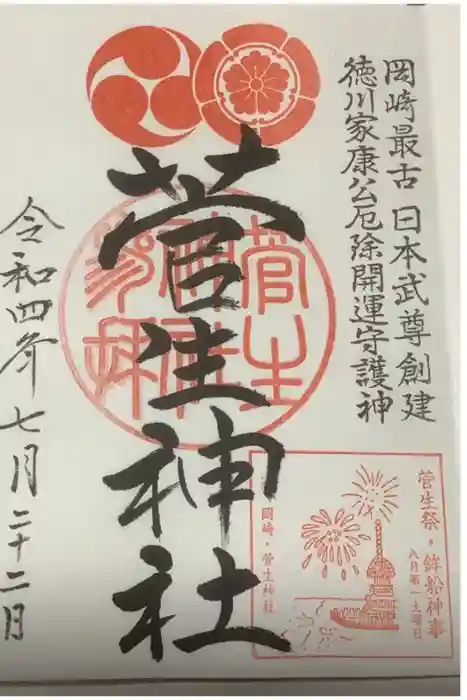 岡崎最古 日本武尊創建
徳川家康公厄除開運守護神
菅生神社
令和四年七月二十二月
菅生祭・鉾船神事
八月第一土曜日
岡崎・菅生神社